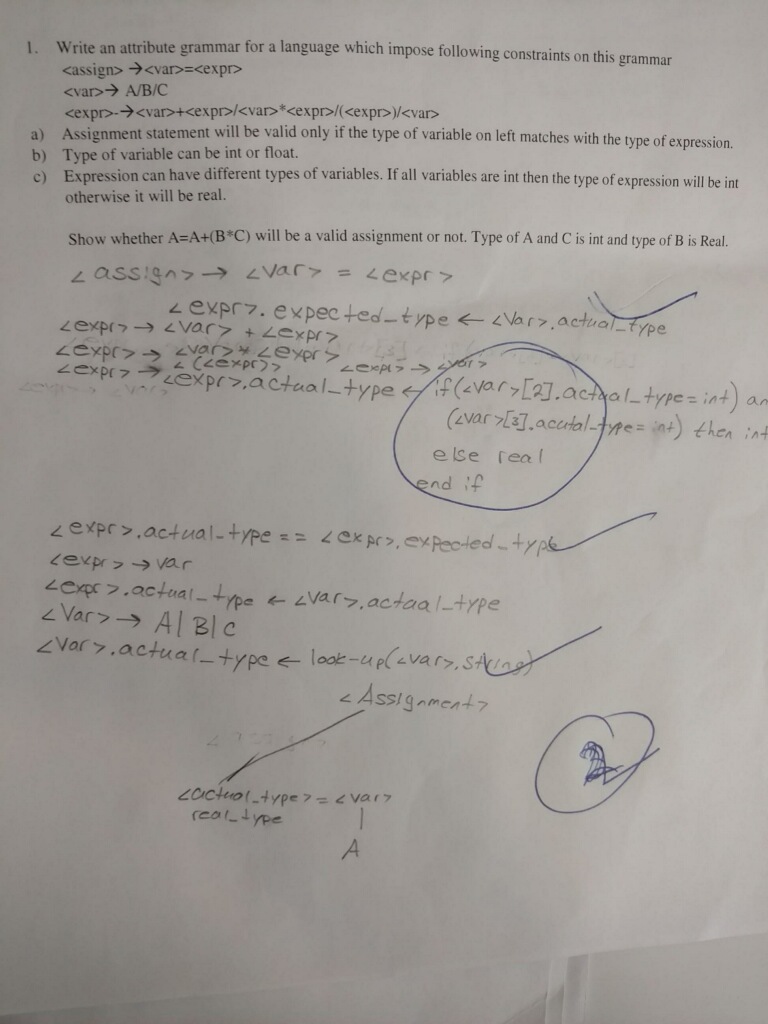 1. Write an attribute grammar for a language which impose following constraints on this grammar
<assign> →<var>=<expr>
<var>→ A/B/C
<expr>-→<var>+<expr>/<var>*<expr>/(<expr>)/<var>
a) Assignment statement will be valid only if the type of variable on left matches with the type of expression.
b) Type of variable can be int or float.
c) Expression can have different types of variables. If all variables are int then the type of expression will be int
otherwise it will be real.
Show whether A=A+(B*C) will be a valid assignment or not. Type of A and C is int and type of B is Real.
<assign> → <var> = <expr>
<expr>.expected_type ← <Var>.actual_type
<expr> → <var> + <expr>
<expr> → <var> * <expr>
<expr> → <(<expr>> <expr> → <var>
<expr>.actual_type ← if(<var>[2].actual_type = int) an
(<var>[3].acutal_type = int) then int
else real
end if
<expr>.actual-type == <expr>.expected_type
<expr> → var
<expr>.actual_type ← <var>.actual_type
<Var> → A|B|C
<Var>.actual_type ← look-up(<var>.string)
<Assignment>
<actual_type> = <var>
real_type
A
2